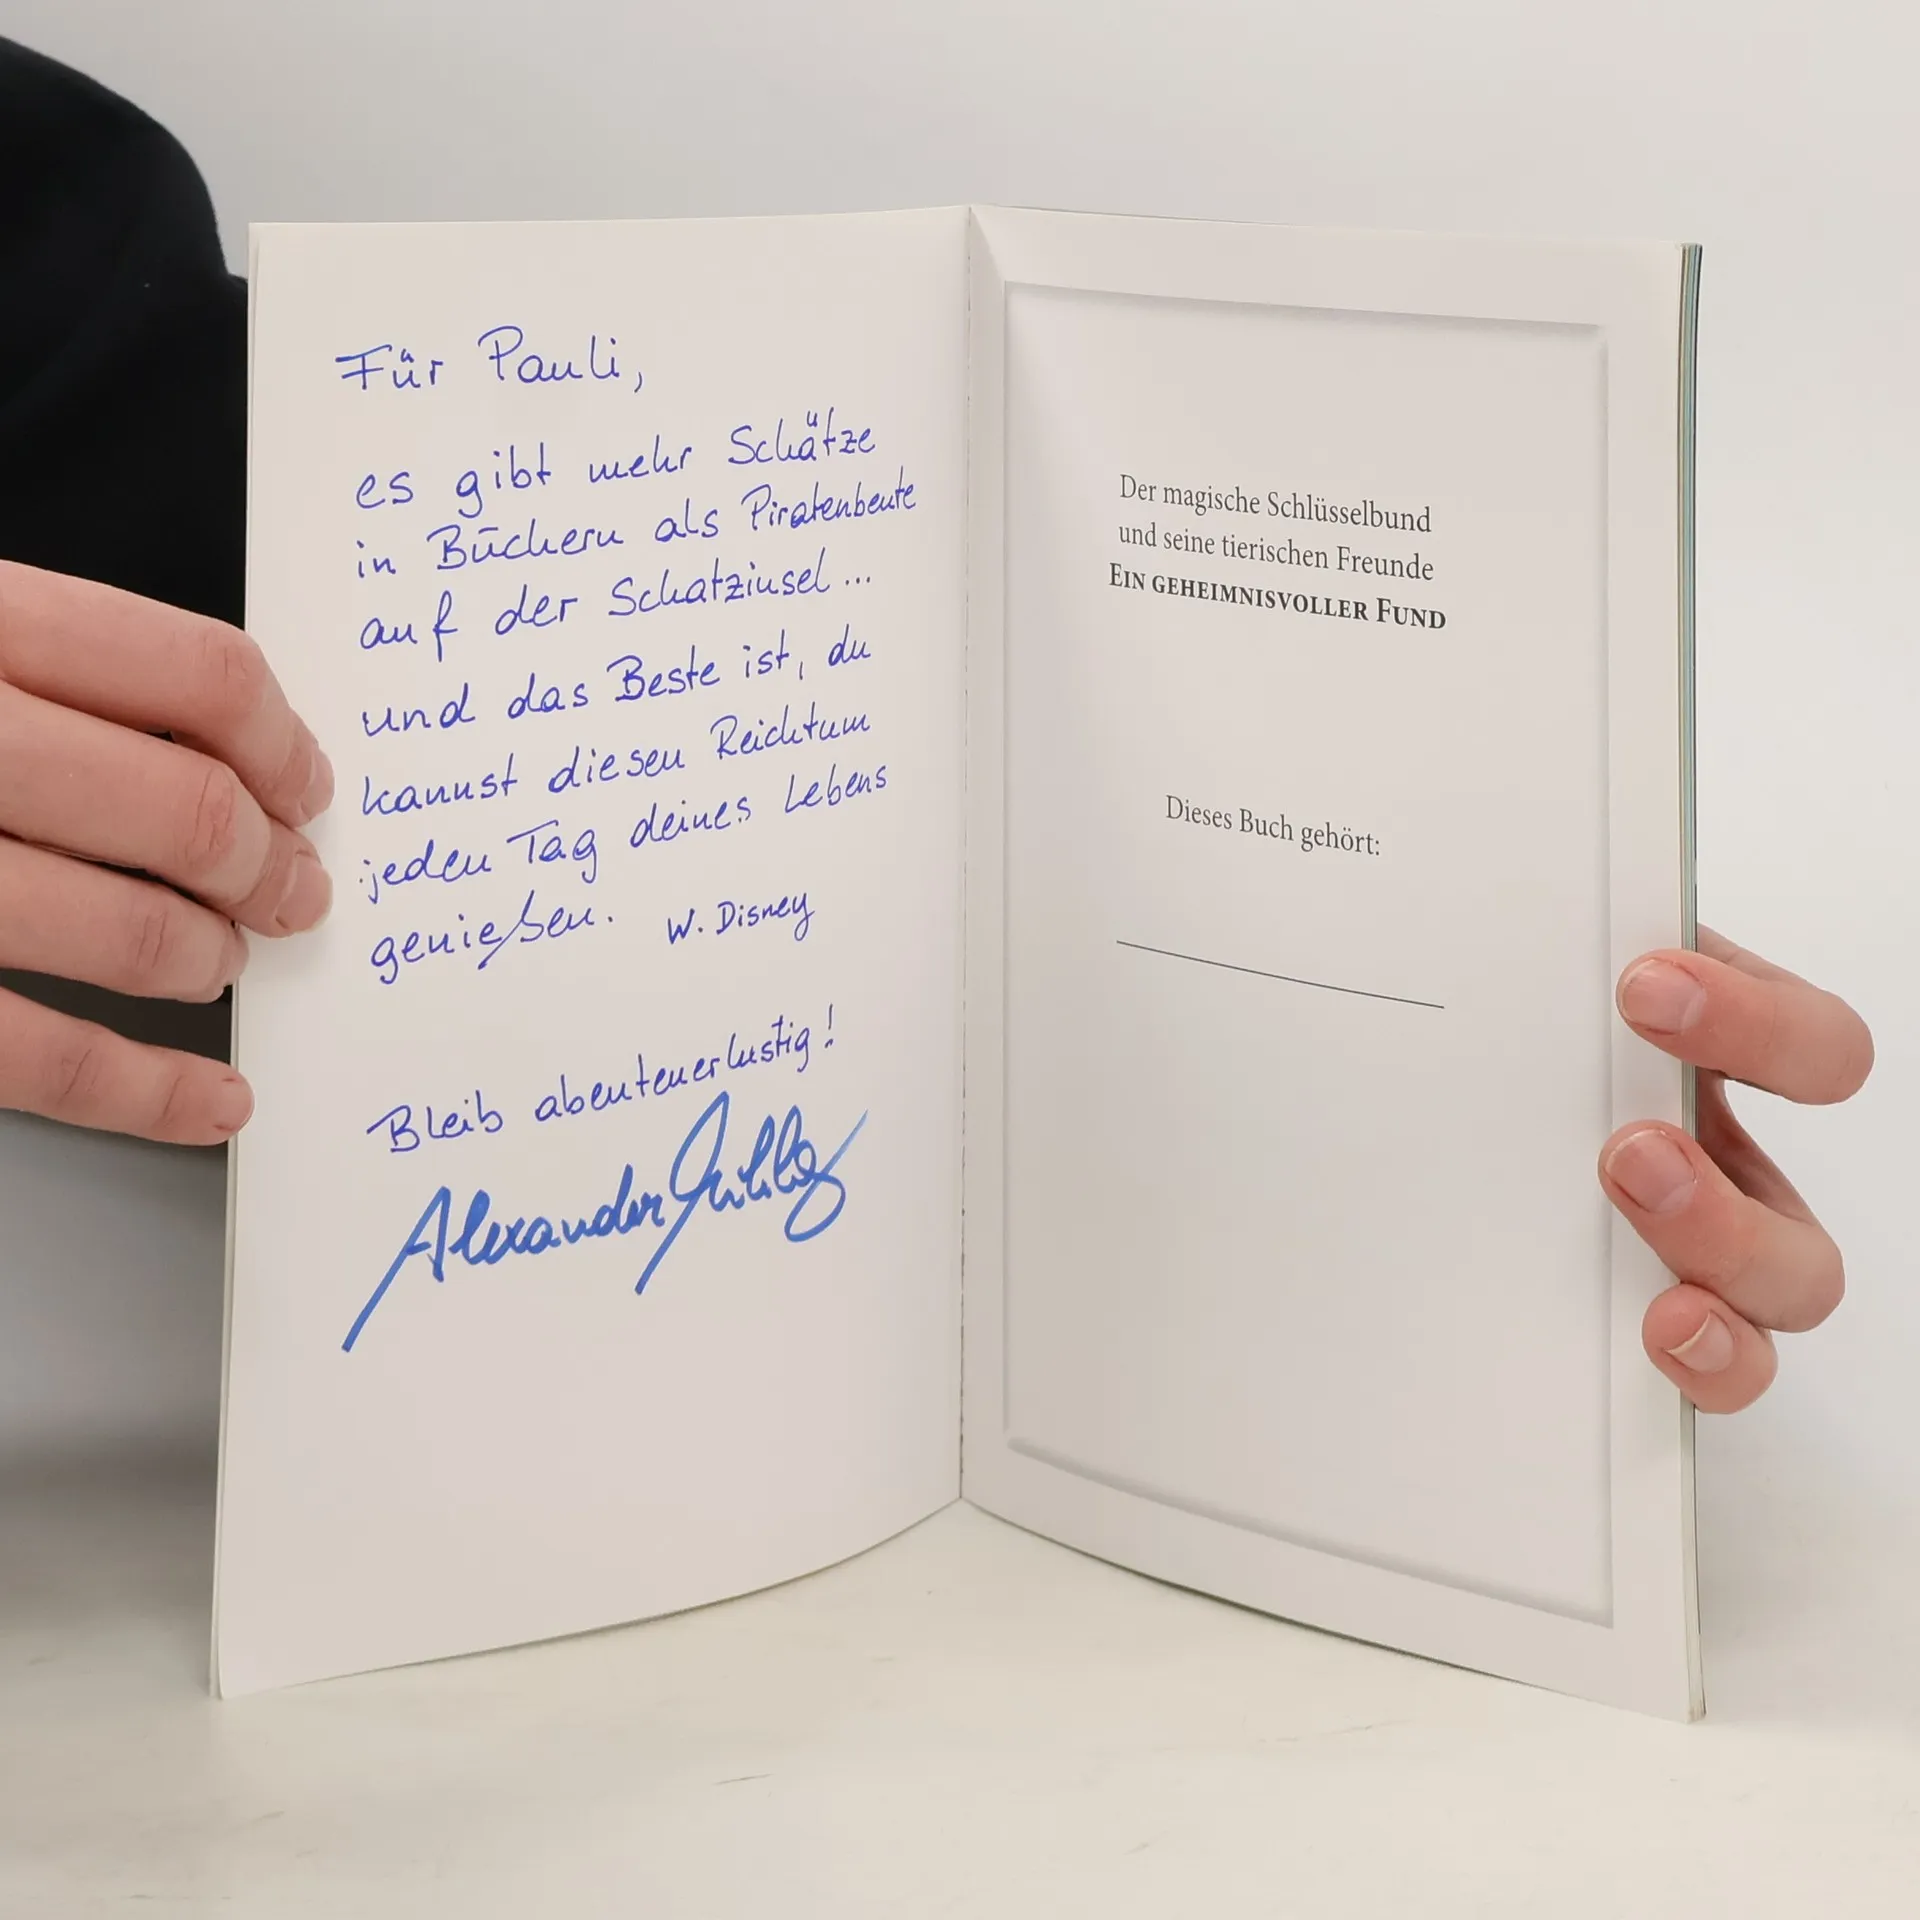 Für Pauli,
es gibt mehr Schätze
in Büchern als Piratenbeute
auf der Schatzinsel...
und das Beste ist, du
kannst diesen Reichtum
jeden Tag deines Lebens
genießen. W. Disney
Bleib abenteuerlustig!
Alexander
Der magische Schlüsselbund
und seine tierischen Freunde
EIN GEHEIMNISVOLLER FUND
Dieses Buch gehört: